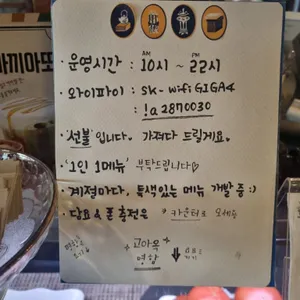 마끼아또
AM PM
· 운영시간 : 10시 ~ 22시
· 와이파이 : SK-WifiGIGA4
: !a2870030
· 선불입니다. 가져다 드릴게요.
· 1인 1메뉴 부탁드립니다♡
· 계절마다, 특색있는 메뉴 개발 중 :)
충전은 카운터로 오세용